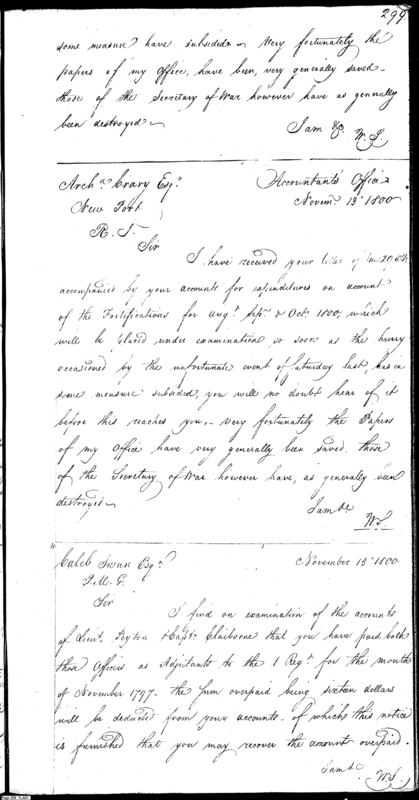 299
some measure have subsided. Very fortunately the
papers of my Office, have been, very generally saved -
those of the Secretary of War however have as generally
been destroyed
I am &c. W. S.
Archd. Crary Esqr.
Accountants Office
New Port
Novemr. 13th 1800
R. I.
Sir
I have received your letter of the 29 ulto.
accompanied by your accounts for expenditures on account
of the Fortifications for Augt. Septr. & Octr. 1800, which
will be placed under examination so soon as the hurry
occasioned by the unfortunate event of Saturday last, has in
some measure subsided, you will no doubt hear of it
before this reaches you. - very fortunately the Papers
of my Office have very generally been saved, those
of the Secretary of War however have, as generally been
destroyed
I am &c.
W. S.
Caleb Swan Esqr.
November 15th 1800
P. M. G.
Sir
I find on examination of the accounts
of Lieut. Peyton & Capt. Claiborne that you have paid both
those Officers as Adjutants to the 1 Regt. for the month
of November 1797 - the Sum overpaid being sixteen dollars
will be deducted from your accounts - of which this notice
is furnished that you may recover the amount overpaid.
I am &c.
W. S.